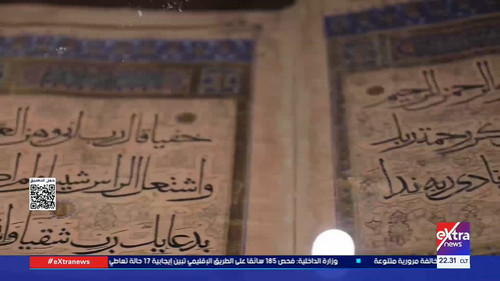 الرحمن الرحيم
كر رحمت ربك
نادى ربه ندا
خفيا قال رب اني وهن الع
واشتعل الراس شيبا ولم اك
بدعائك رب شقيا وا
حمل التطبيق
eXtra
news
22.31
#eXtranews
خالفة مرورية متنوعة وزارة الداخلية: فحص 185 سائقا على الطريق الإقليمي تبين إيجابية 17 حالة تعاطي